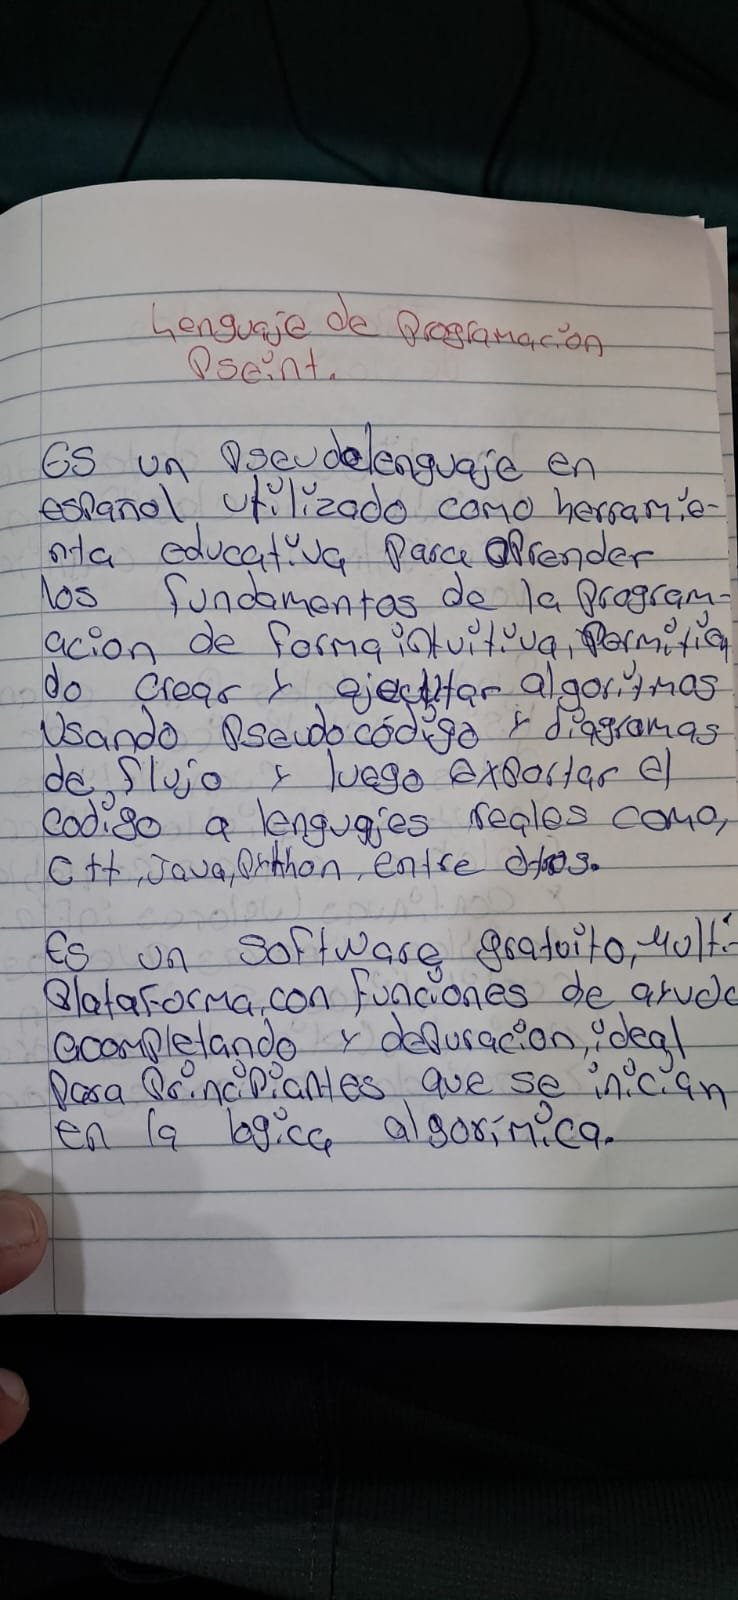 Lenguaje de Programación
Pseint.
Es un Pseudolenguaje en
español utilizado como herramie-
nta educativa Para aprender
los fundamentos de la Program-
acion de forma intuitiva, Permitien
do crear y ejecutar algoritmos
Usando Pseudocódigo y diagramas
de flujo y luego exportar el
codigo a lenguajes reales como,
C++, Java, Python, entre otros.
Es un software gratuito, Multi-
Plataforma, con funciones de ayuda
acompletando y depuracion, ideal
Para Principiantes que se inician
en la logica algorimica.